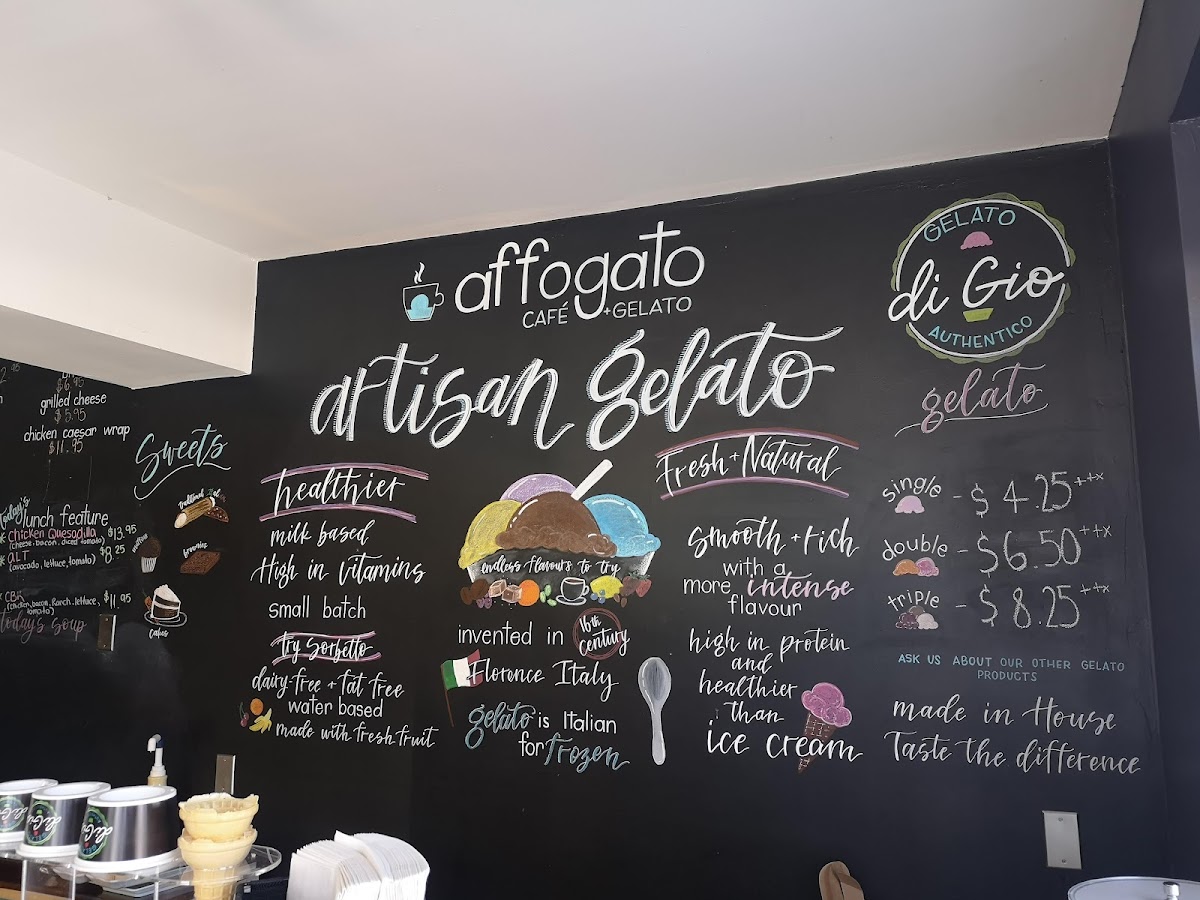 affogato
CAFÉ +GELATO
artisan gelato
GELATO
di Gio
AUTHENTICO
$6.95
grilled cheese
$5.95
chicken caesar wrap
$11.95
today's
lunch feature
chicken Quesadilla $13.95
(cheese, bacon, diced tomato)
aLT $8.25
(avocado, lettuce, tomato)
CBR $11.95
(chicken, bacon, Ranch, lettuce,
tomato)
today's soup
Sweets
muffins
brownies
cakes
healthier
milk based
High in vitamins
small batch
try Sorbetto
dairy-free + fat free
water based
made with fresh fruit
endless flavours to try
invented in 16th Century
Florence Italy
gelato is Italian
for frozen
Fresh + Natural
smooth + rich
with a
more intense
flavour
high in protein
and
healthier
than
ice cream
gelato
single - $4.25 ++x
double - $6.50 ++x
triple - $8.25 ++x
ASK US ABOUT OUR OTHER GELATO
PRODUCTS
made in House
Taste the difference
di Gio
di Gio